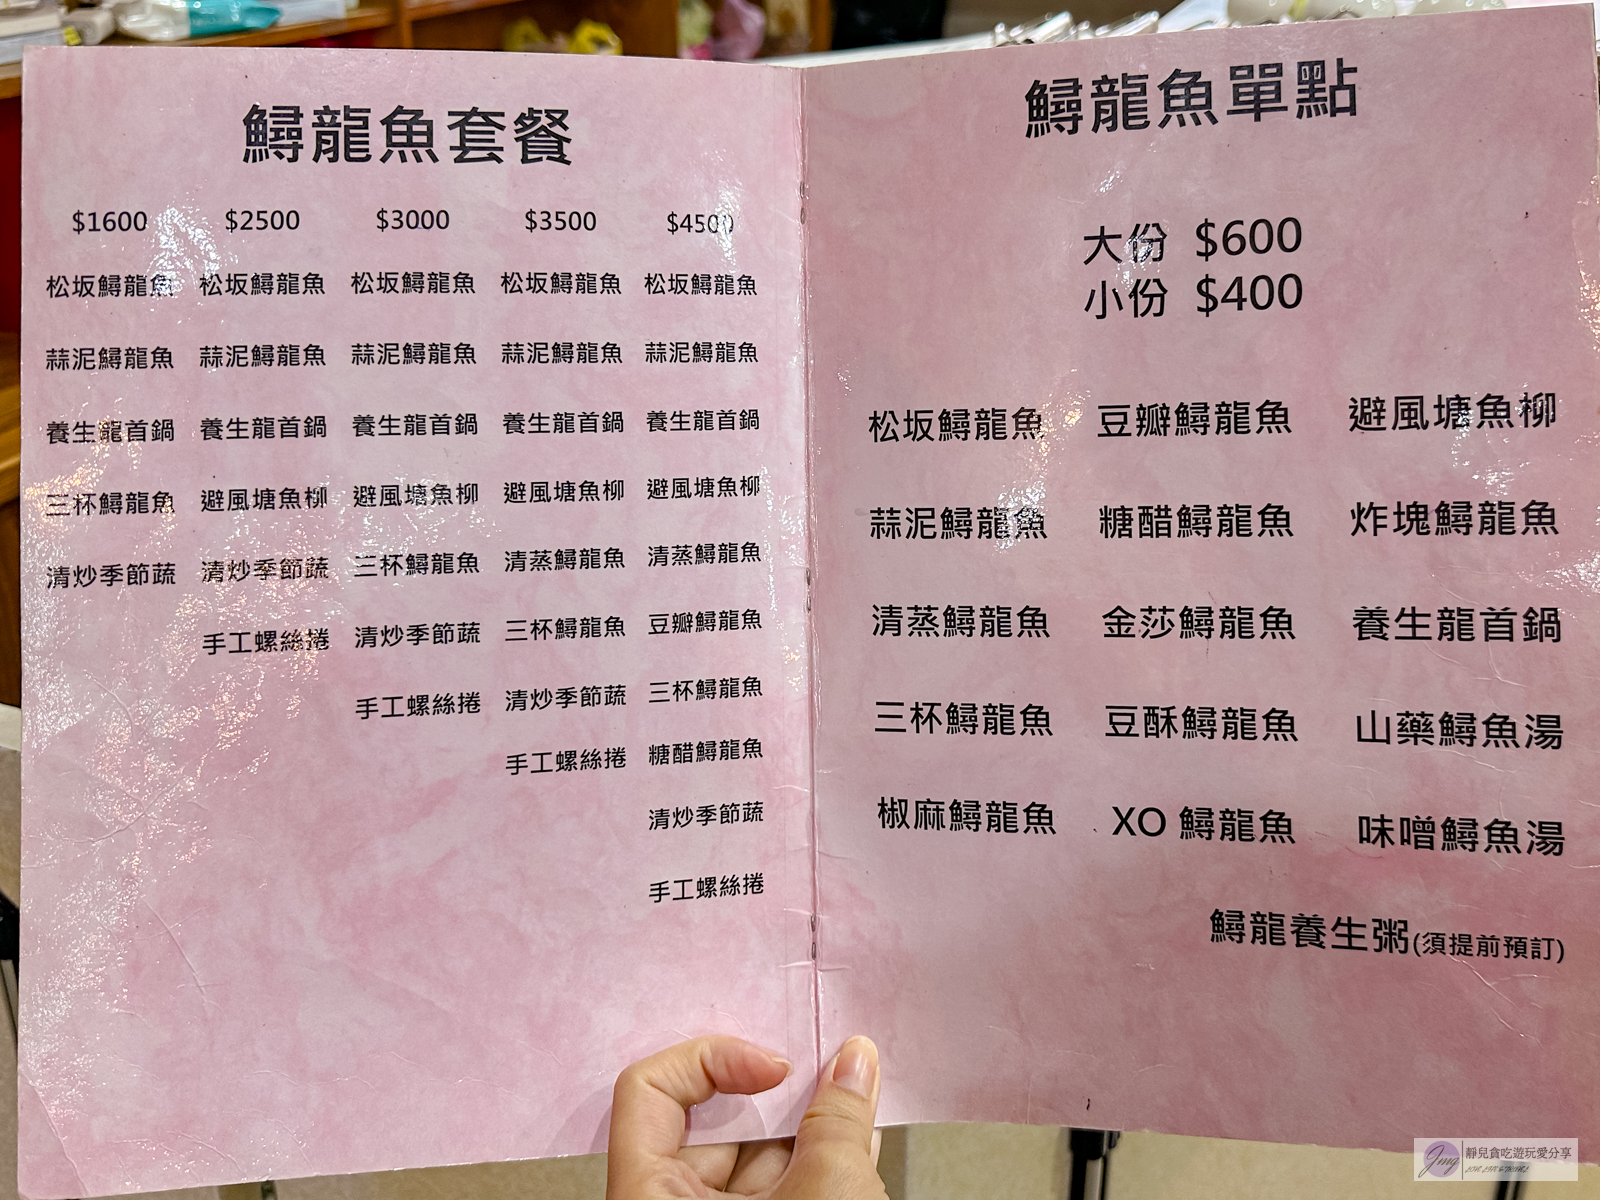 鱘龍魚套餐
$1600 $2500 $3000 $3500 $4500
松坂鱘龍魚 松坂鱘龍魚 松坂鱘龍魚 松坂鱘龍魚 松坂鱘龍魚
蒜泥鱘龍魚 蒜泥鱘龍魚 蒜泥鱘龍魚 蒜泥鱘龍魚 蒜泥鱘龍魚
養生龍首鍋 養生龍首鍋 養生龍首鍋 養生龍首鍋 養生龍首鍋
三杯鱘龍魚 避風塘魚柳 避風塘魚柳 避風塘魚柳 避風塘魚柳
清炒季節蔬 清炒季節蔬 三杯鱘龍魚 清蒸鱘龍魚 清蒸鱘龍魚
手工螺絲捲 清炒季節蔬 三杯鱘龍魚 豆瓣鱘龍魚
手工螺絲捲 清炒季節蔬 三杯鱘龍魚
手工螺絲捲 糖醋鱘龍魚
清炒季節蔬
手工螺絲捲
鱘龍魚單點
大份 $600
小份 $400
松坂鱘龍魚 豆瓣鱘龍魚 避風塘魚柳
蒜泥鱘龍魚 糖醋鱘龍魚 炸塊鱘龍魚
清蒸鱘龍魚 金莎鱘龍魚 養生龍首鍋
三杯鱘龍魚 豆酥鱘龍魚 山藥鱘魚湯
椒麻鱘龍魚 XO 鱘龍魚 味噌鱘魚湯
鱘龍養生粥(須提前預訂)
Jmg 靜兒貪吃遊玩愛分享